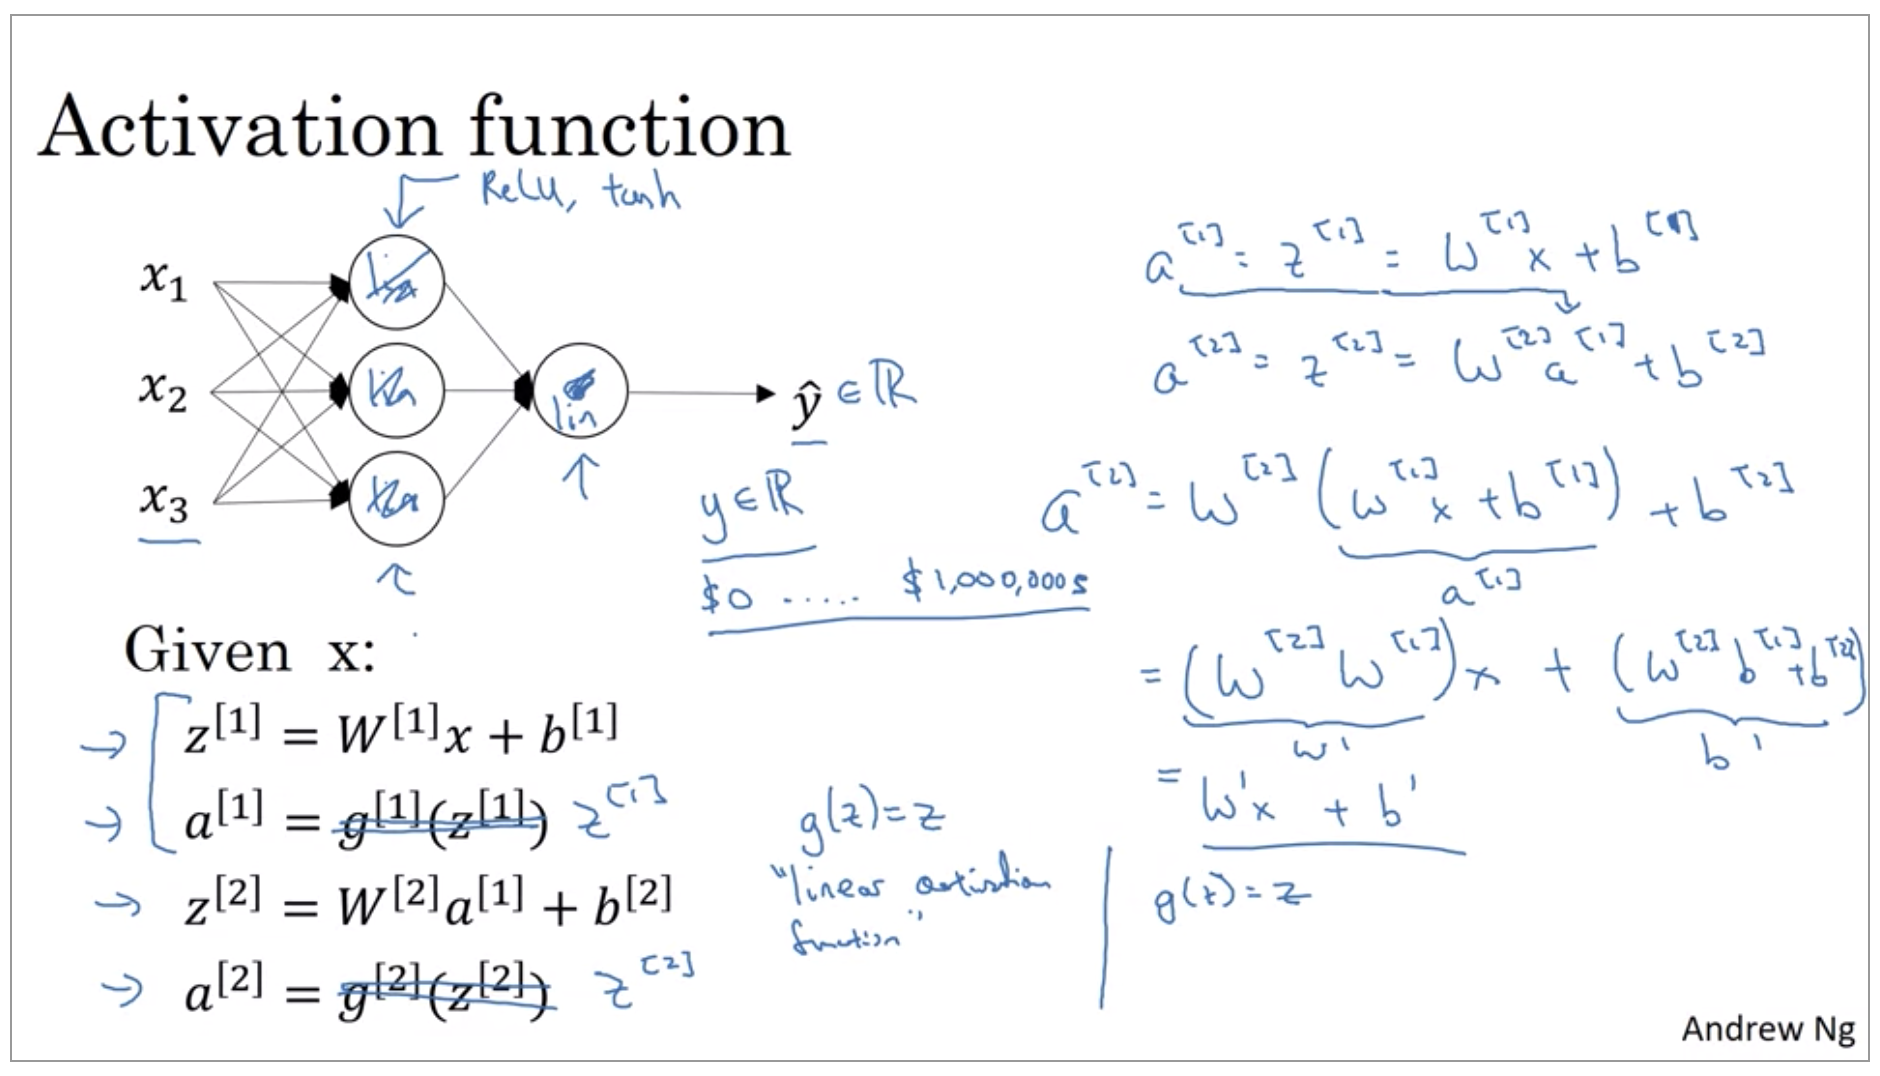 Activation function
ReLU, tanh
x₁
x₂
x₃
lin
ŷ ∈ ℝ
y ∈ ℝ
$0 ..... $1,000,000s
Given x:
→ z[1] = W[1]x + b[1]
→ a[1] = g[1](z[1]) z[1]
→ z[2] = W[2]a[1] + b[2]
→ a[2] = g[2](z[2]) z[2]
g(z) = z
"linear activation
function"
a[1] = z[1] = W[1]x + b[1]
a[2] = z[2] = W[2]a[1] + b[2]
a[2] = W[2](W[1]x + b[1]) + b[2]
a[1]
= (W[2]W[1])x + (W[2]b[1] + b[2])
W' b'
= W'x + b'
g(z) = z
Andrew Ng